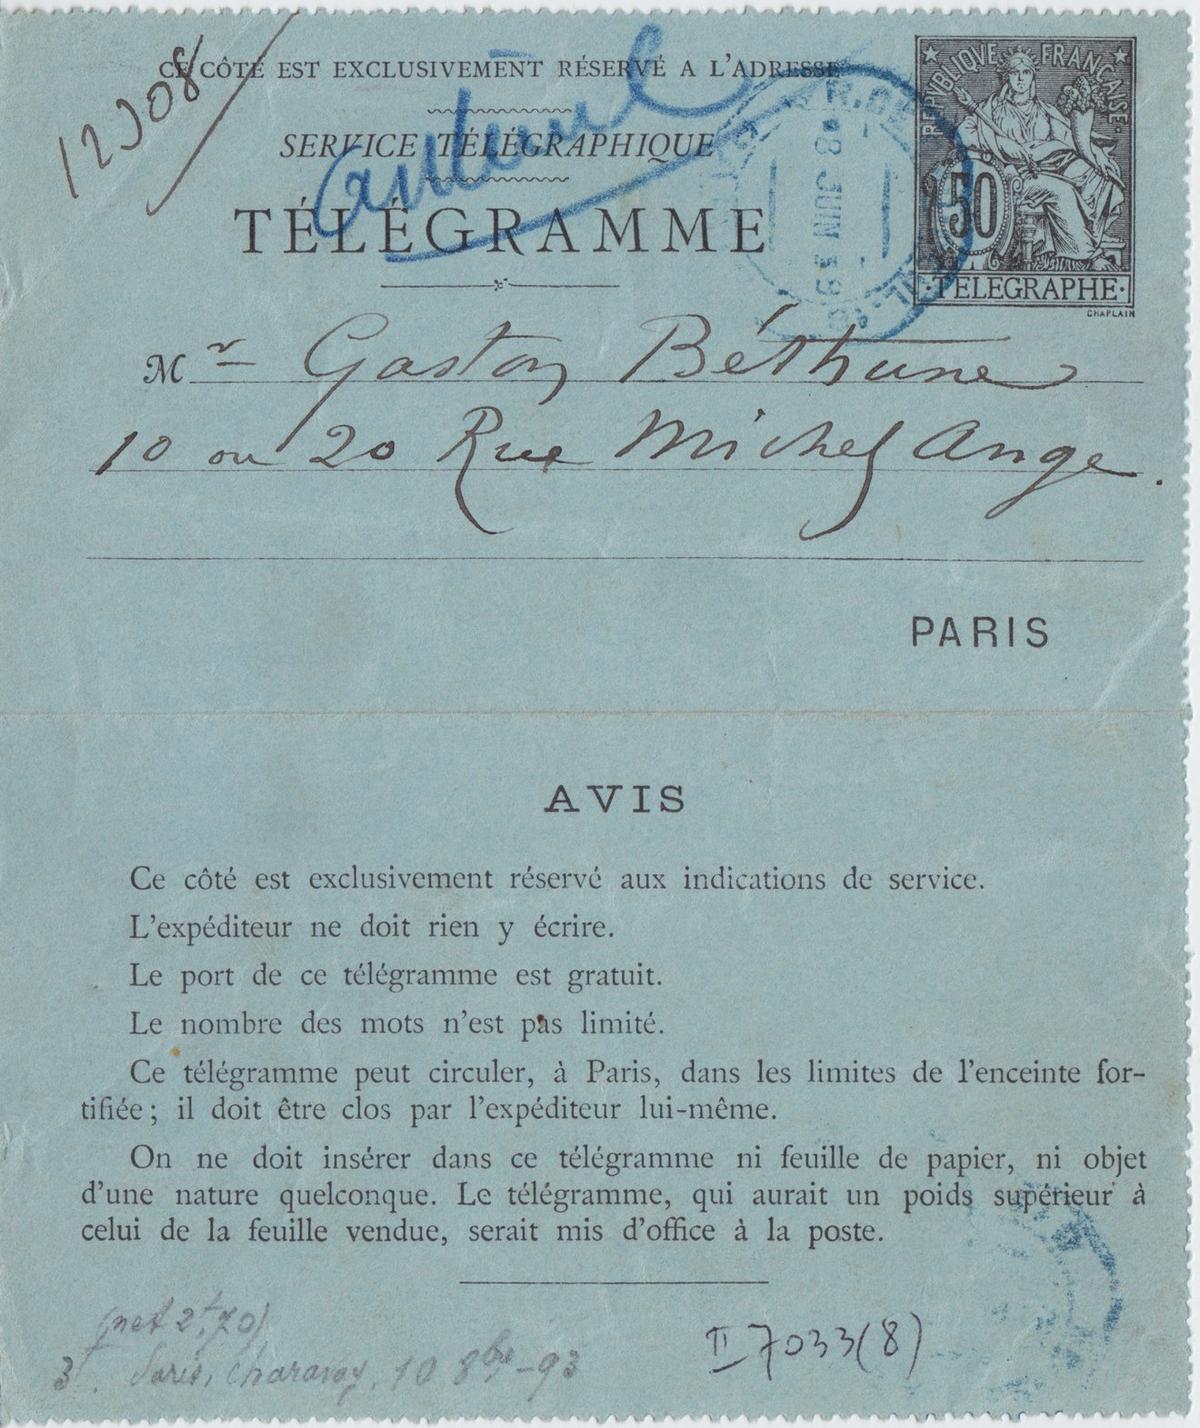 12208
CE CÔTÉ EST EXCLUSIVEMENT RÉSERVÉ A L'ADRESSE
SERVICE TÉLÉGRAPHIQUE
TÉLÉGRAMME
REPUBLIQUE FRANÇAISE
50
TELEGRAPHE
CHAPLAIN
8 JUIN
Mr Gaston Béthune
10 ou 20 Rue Michel Ange.
PARIS
AVIS
Ce côté est exclusivement réservé aux indications de service.
L'expéditeur ne doit rien y écrire.
Le port de ce télégramme est gratuit.
Le nombre des mots n'est pas limité.
Ce télégramme peut circuler, à Paris, dans les limites de l'enceinte for-
tifiée; il doit être clos par l'expéditeur lui-même.
On ne doit insérer dans ce télégramme ni feuille de papier, ni objet
d'une nature quelconque. Le télégramme, qui aurait un poids supérieur à
celui de la feuille vendue, serait mis d'office à la poste.
(net 2f,70)
3f. Paris, Charavay, 10 8bre-93
II 7033(8)